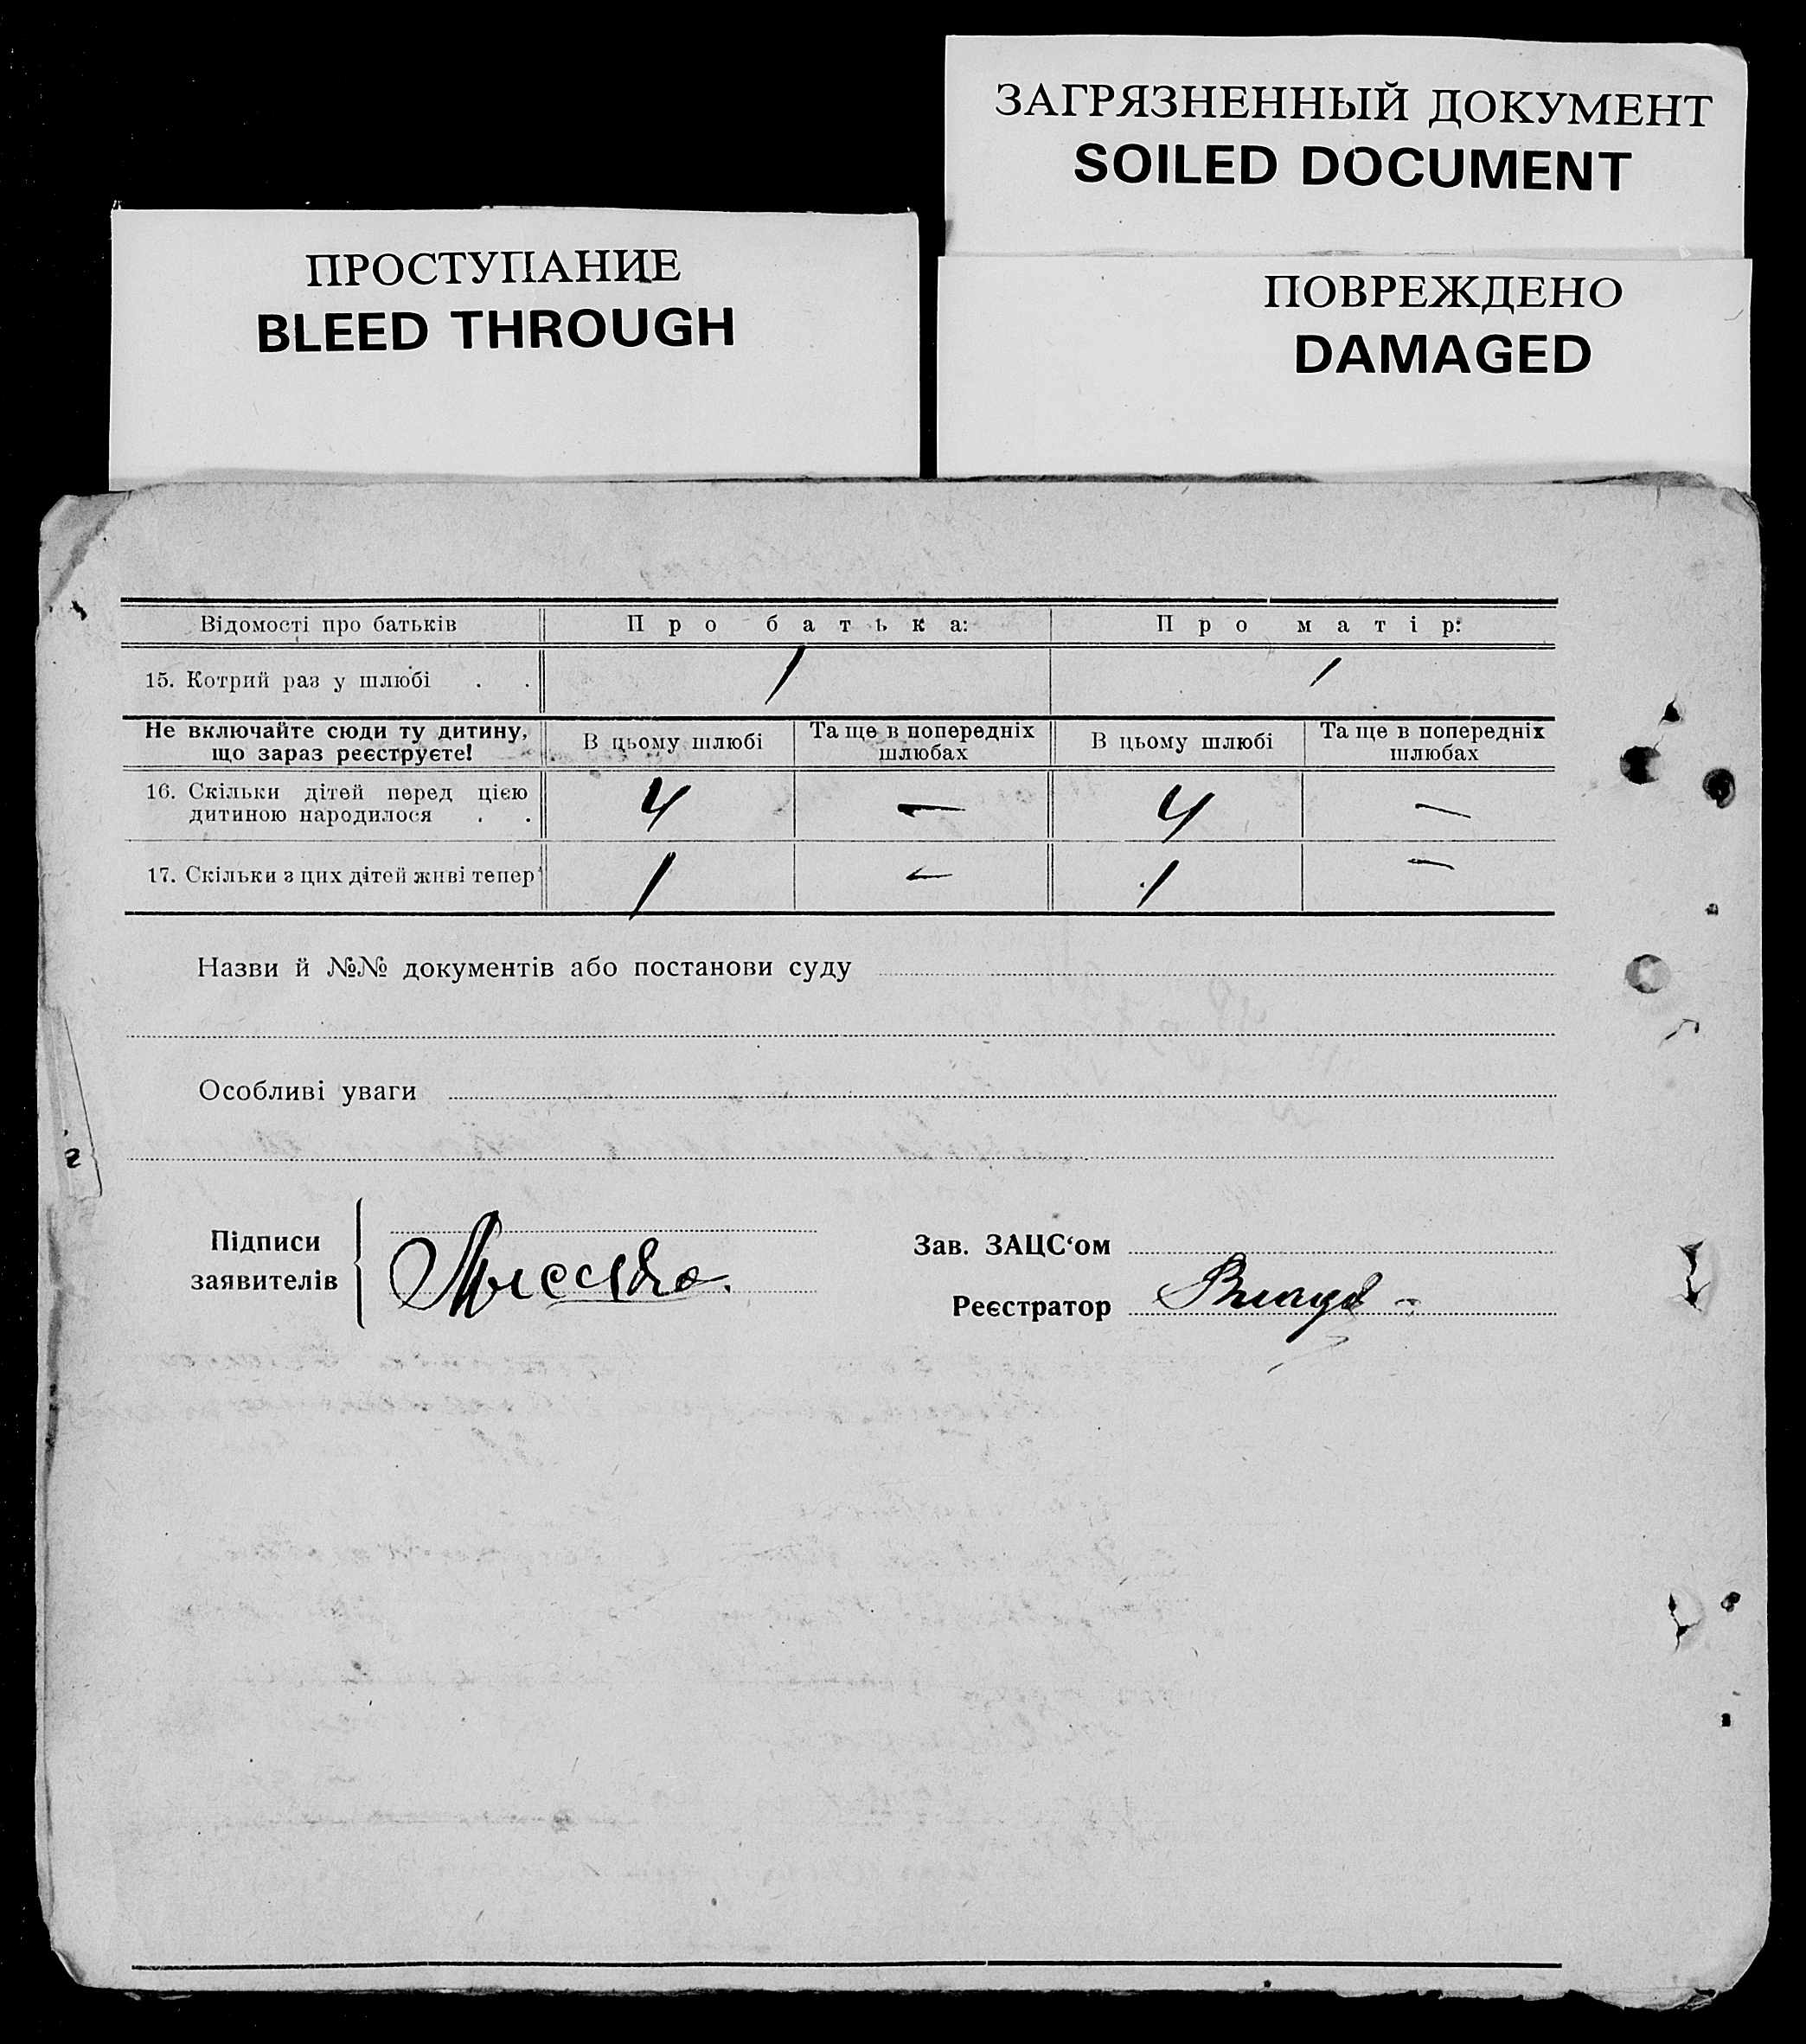 ЗАГРЯЗНЕННЫЙ ДОКУМЕНТ
SOILED DOCUMENT
ПРОСТУПАНИЕ
BLEED THROUGH
ПОВРЕЖДЕНО
DAMAGED
Відомості про батьків Про батька: Про матір:
15. Котрий раз у шлюбі . . 1 1
Не включайте сюди ту дитину, що зараз реєструєте! В цьому шлюбі Та ще в попередніх шлюбах В цьому шлюбі Та ще в попередніх шлюбах
16. Скільки дітей перед цією
дитиною народилося . . 4 — 4 —
17. Скільки з цих дітей живі тепер 1 — 1 —
Назви й №№ документів або постанови суду
Особливі уваги
2
Підписи
заявителів
Зав. ЗАЦС‘ом
Реєстратор